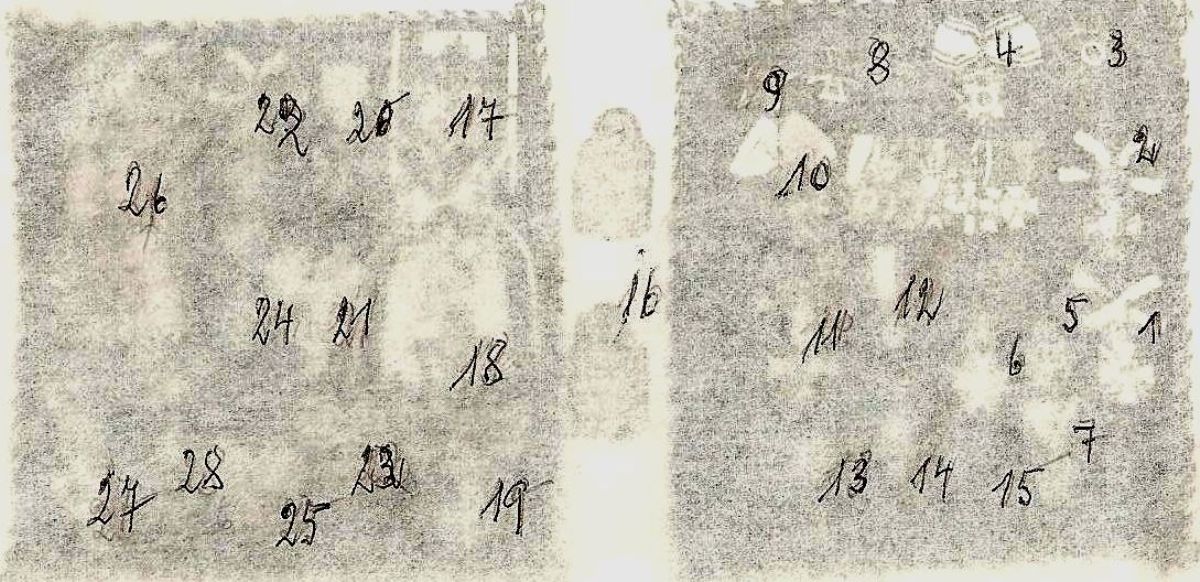 8 4 3
9
22 20 17 2
26 10
16
24 21 11 12 5 1
18 6
7
28 23 13 14 15
27 25 19